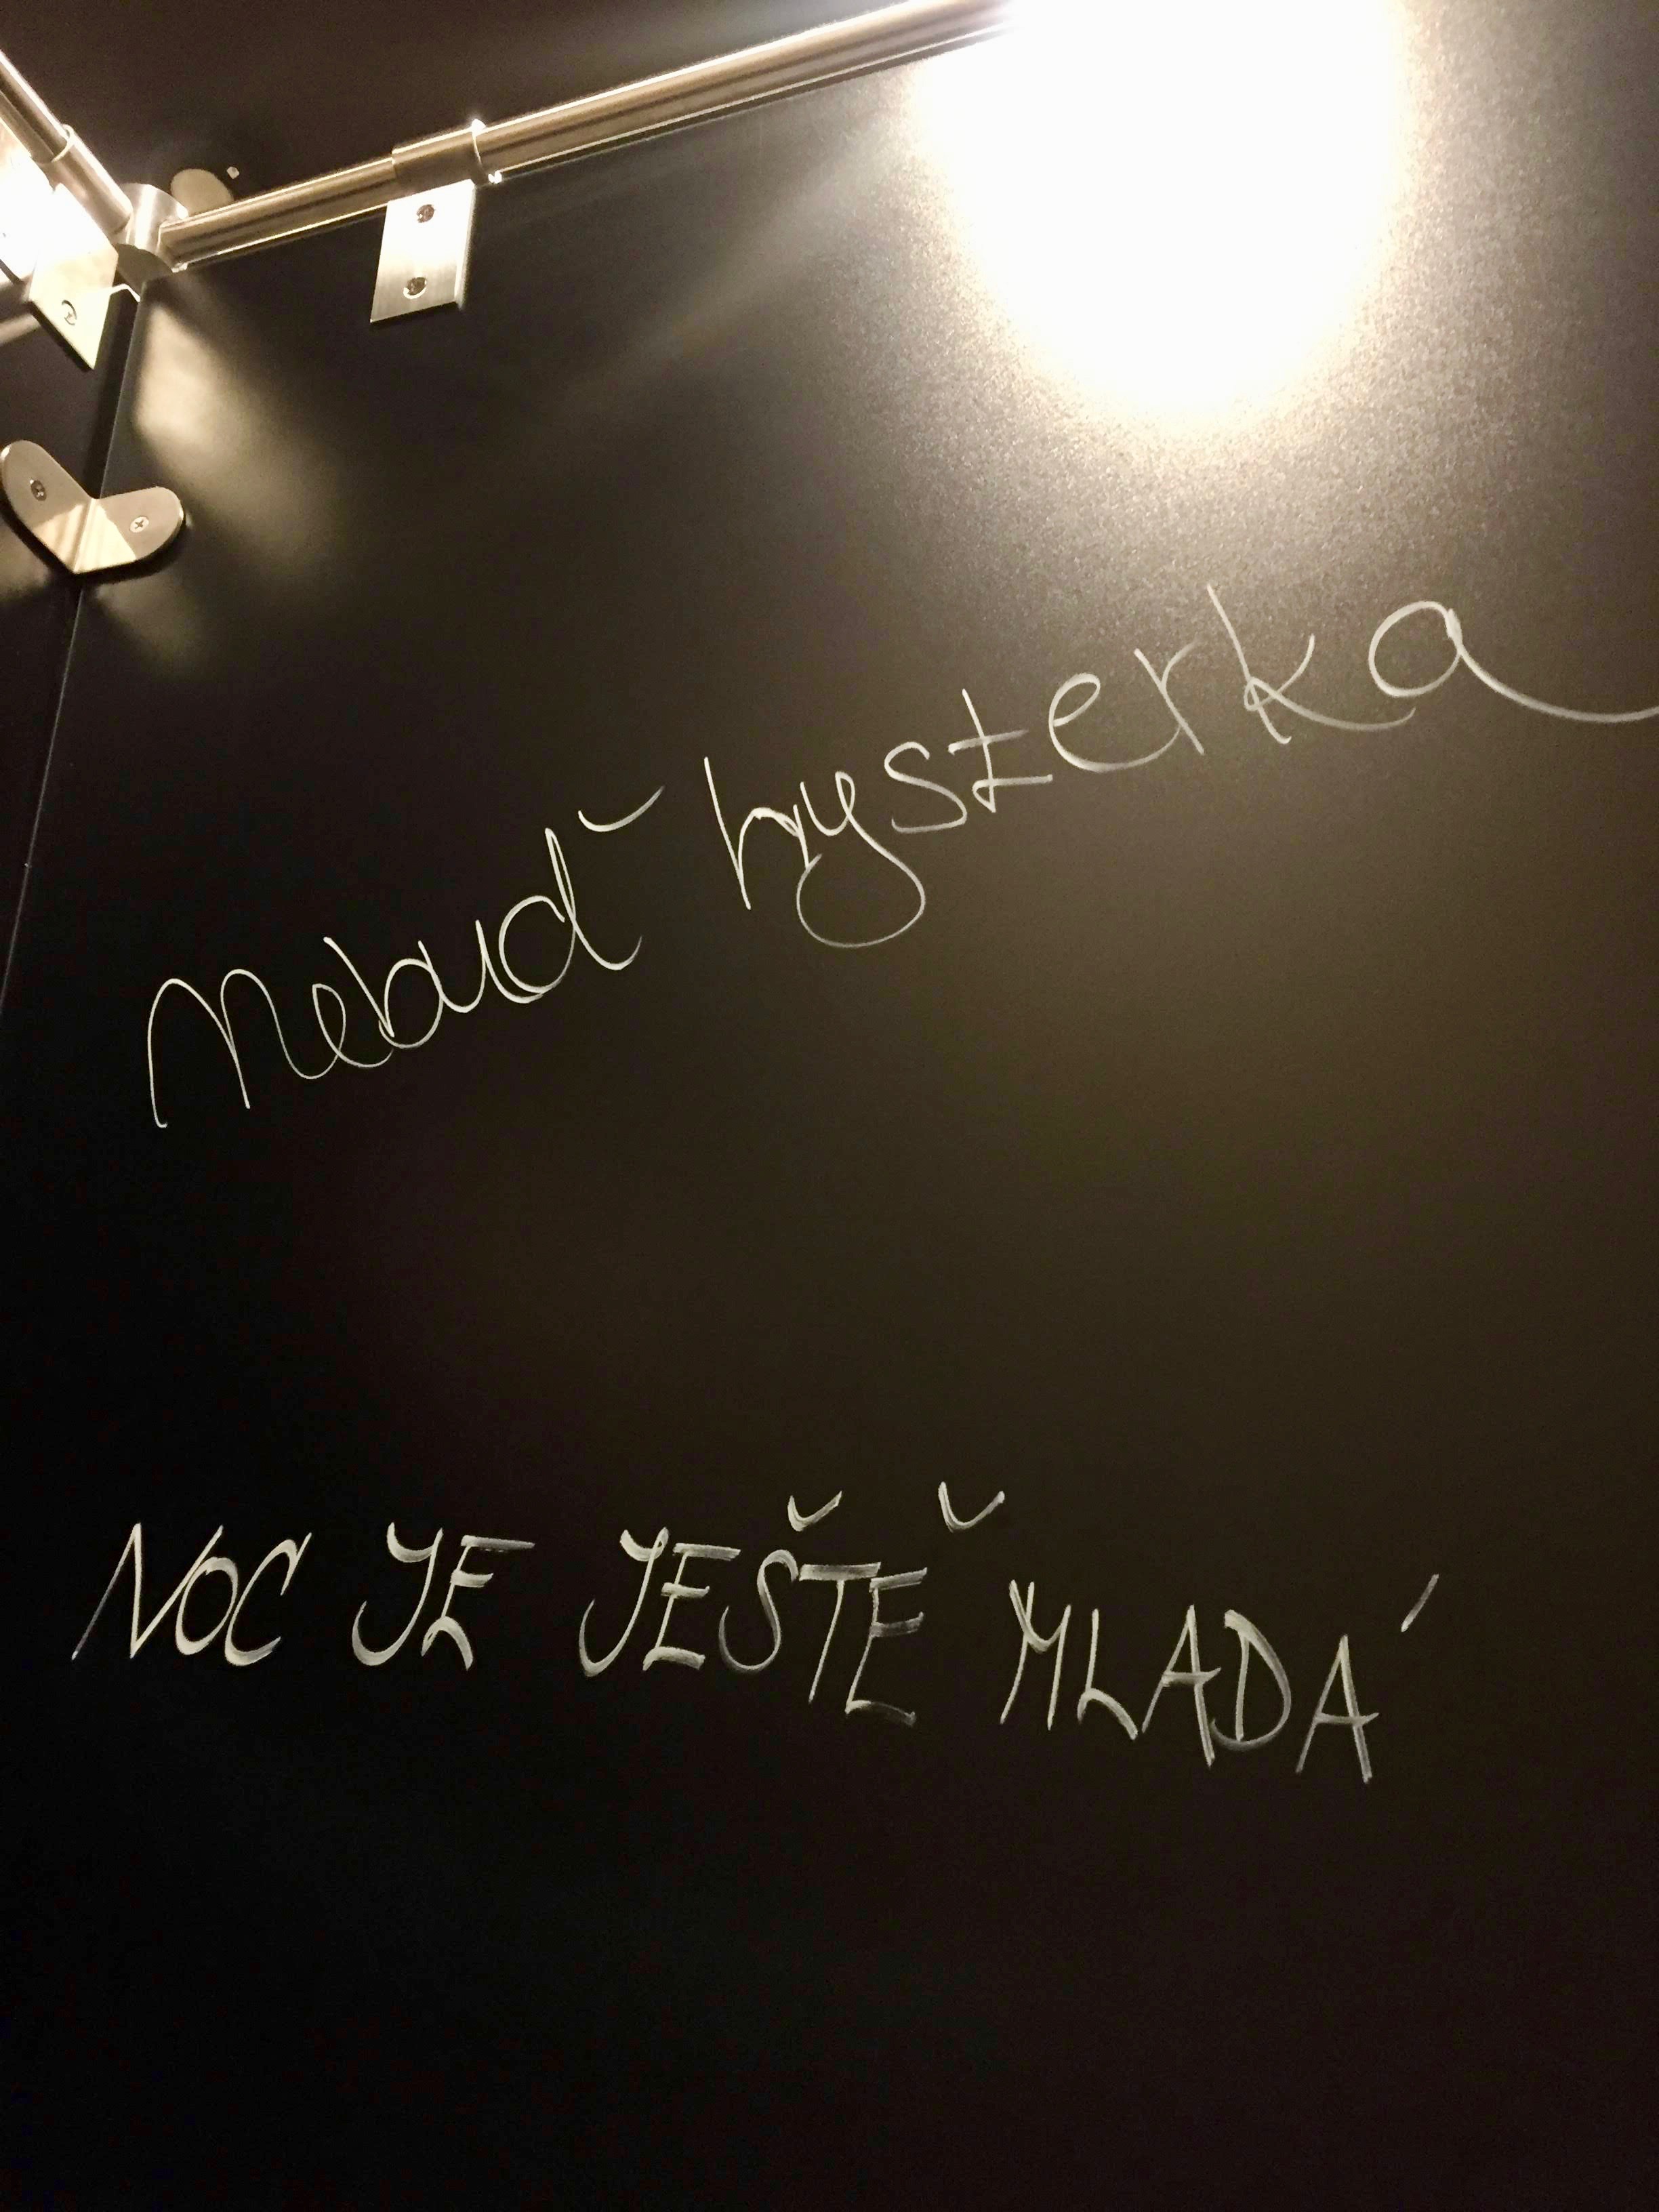 Nebuď hysterka
NOC JE JEŠTĚ MLADÁ